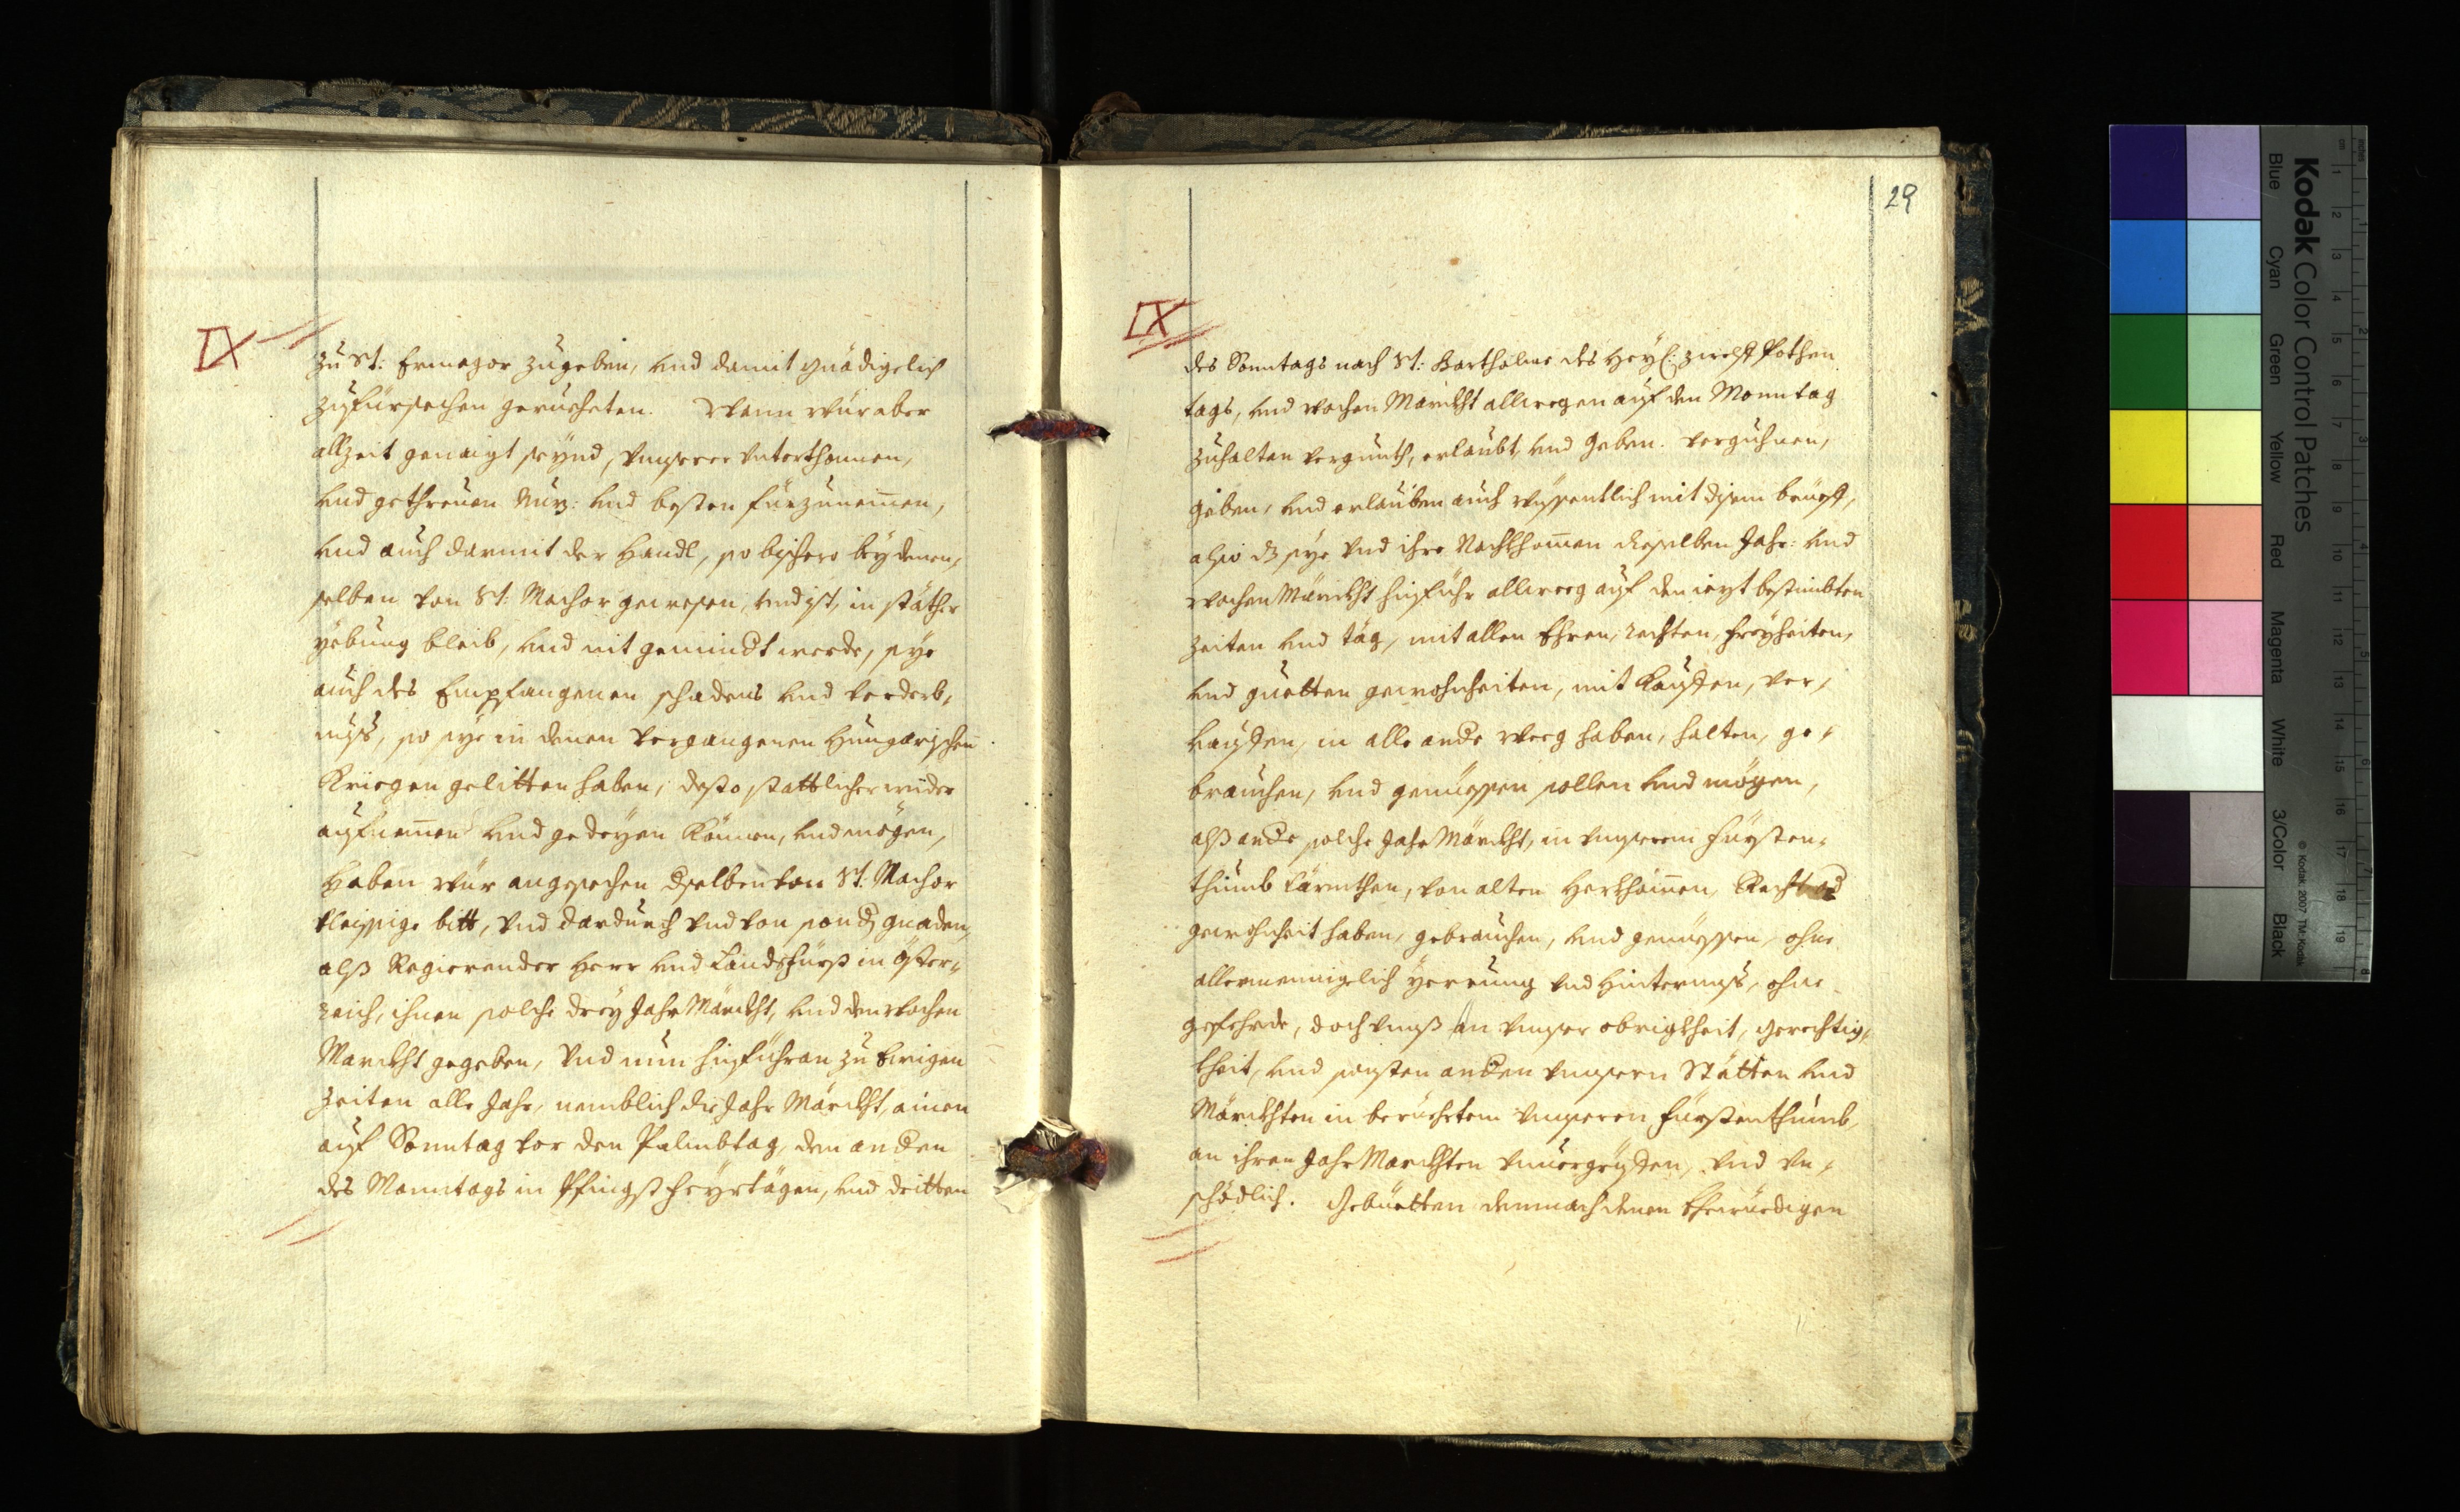 IX
zu St: Ermagor zugeben, und damit gnädigelich
zufürsechen gerucheten. Wann wür aber
allzeit genaigt seynd, unserer Unterthonnen,
und gethreuen Nuz: und besten fürzunemen,
und auch darmit der Handl, so bisher bey denen,
selben von St: Machor gewesen, und ist, in stäther
yebung bleib, und nit gemindt werde, sye
auch des Empfangenen schadens und verderb,
nuß, so sye in denen vergangenen Hungarischen
Kriegen gelitten haben, desto stattlicher wider
aufnemen und gedeyen können, und mögen,
Haben wür angesechen dselben von St. Machor
vleissige bitt, und dardurch und von sond gnaden,
alß Regierender Herr und Landsfürst in Öster,
reich, ihnen solche drey Jahr Märckht, und den wochen
Marckht gegeben, und nun hinführan zu Ewigen
Zeiten alle Jahr, nemblich die Jahr Märckht, ainen
auf Sonntag vor den Palmbtag, den anden
des Monntags in Pfingst feyrtägen, und dritten
29
IX
des Sonntags nach St: Bartholme des Heyl: zwelf Pothen
tags, und wochen Märckht allwegen auf den Monntag
zuhalten vergunth, erlaubt, und geben. Verguhnen,
geben, und erlauben auch wissentlich mit disem brüeff,
also dz sye und ihre Nachkhomen dieselben Jahr: und
wochen Märckht hinführ allweeg auf den iezt bestimbten
zeiten und täg, mit allen Ehren, rechten, freyheiten,
und guetten gewohnheiten, mit Kauffen, ver,
kauffen, in alle ande weeg haben, halten, ge,
brauchen, und genüessen sollen und mögen,
alß ande solche Jahr Märckht, in unserem Fürsten,
thumb Cärnthen, von alten Herkhomen, Recht od
gewohnheit haben, gebrauchen, und genüessen, ohne
allermenniglich yerrung und Hinternuß, ohne
gefehrde, doch unß an unser obrigkheit, gerechtig,
kheit, und sonsten anden unsern Stätten und
Märckhten in berüehrtem unseren Fürstenthumb,
an ihren Jahr Marckhten unvergriffen, und un,
schödlich. Gebüetten demnach denen Ehrwürdigen